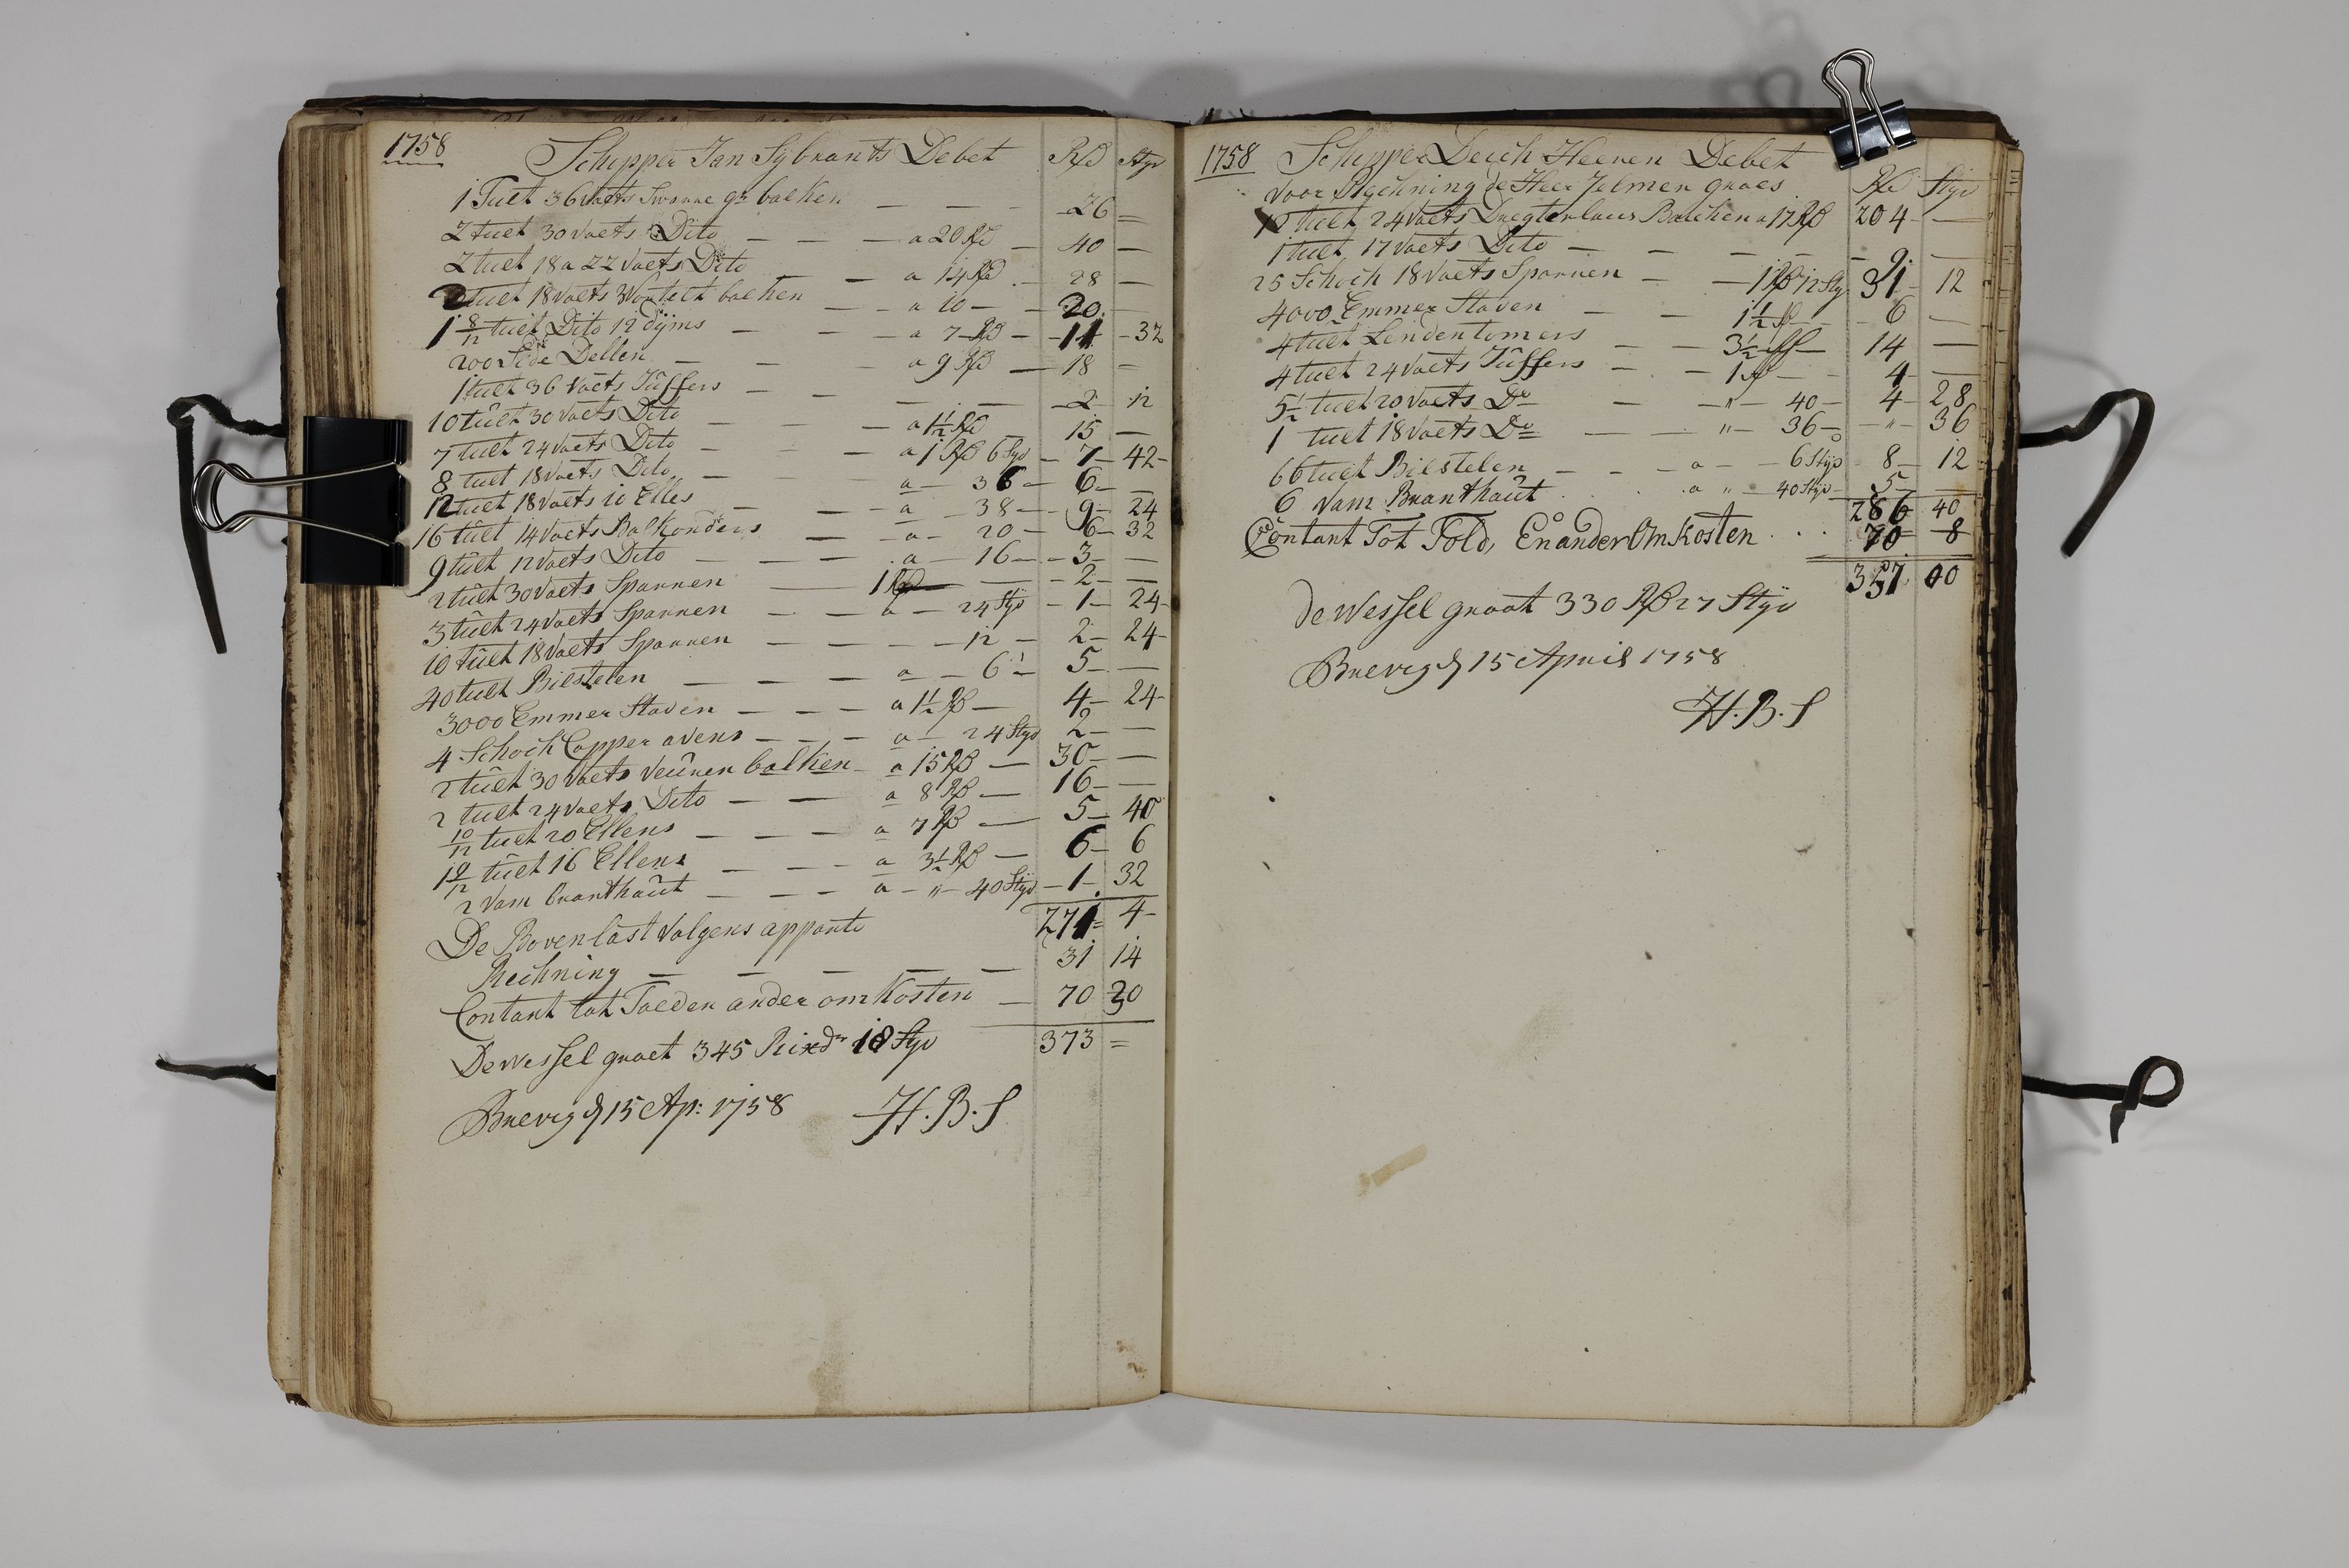 1758 Schipper Jan Sybrants Debet Rd Styv
1 Tuelt 36 Voets Swaare gr balken — — — 26 =
2 tuelt 30 Voets Dito — — — a 20 Rd — 40 —
2 tuelt 18 a 22 Voets Dito — a 14 Rd — 28 —
2 tuelt 18 Voets balken — — a 10 — 20
1 8/12 tuelt Dito 12 dÿms — — a 7 Rd — 11 - 32
200 Dellen — — a 9 Rd — 18 —
1 tuelt 36 Voets Tüffers — — — 2 12
10 tuelt 30 Voets Dito — — a 1½ Rd 15 —
7 tuelt 24 Voets Dito — — a 1 Rd 6 Styv — 7 — 42
8 tuelt 18 Voets Dito — — a — 36 — 6 —
12 tuelt 18 Voets 10 Elles — — a — 38 — 9 — 24
16 tuelt 14 Voets Balkonders — — a — 20 — 6 — 32
9 tuelt 12 Voets Dito — — a — 16 — 3 —
2 tuelt 30 Voets Sparren — 1 Rd — 2 —
3 tuelt 24 Voets Sparren — — a — 24 Styv — 1 — 24
10 tuelt 18 Voets Sparren — — — 12 — 2 — 24
40 tuelt Bilstelen — — — a — 6 — 5 —
3000 Emmer Staven — — — a 1½ Rd — 4 — 24
4 Schock Copper avens — — — a — 24 Styv 2 —
2 tuelt 30 Voets Veuren balken — a 15 Rd — 30 —
2 tuelt 24 Voets Dito — — a 8 Rd — 16 —
10/12 tuelt 20 Ellens — — — a 7 Rd — 5 — 40
1 9/12 tuelt 16 Ellens — — — a 3½ Rd — 6 — 6
2 Vam branthaut — — — a — " — 40 Styv — 1 — 32
De Bovenlast Volgens apparte 271 = 4
Rechning — — — — — 31 14
Contant tot ander omkosten — 70 30
De Wessel groet 345 Rixdr 18 Styv 373 =
Brevig d 15 Ap: 1758 H. B. S
1758 Schipper Derch Heeren Debet
Voor Rechning de Heer Jelmer Rd Styv
12 tuelt 24 Voets Balcken a 17 Rd 204 —
1 tuelt 17 Voets Dito — — — — 9 —
25 Schock 18 Voets Sparren — — 1 Rd 12 Sty 31 12
4000 Emmer Staven — — 1½ Rd — 6 —
4 tuelt Lendentomers — — 3½ Rd — 14 —
4 tuelt 24 Voets Tüffers — — 1 Rd — 4 —
5½ tuelt 20 Voets Do — — " — 40 — 4 — 28
1 tuelt 18 Voets Do — — " — 36 — " — 36
66 tuelt Bilstelen — — a — 6 Styv 8 — 12
6 Vam Branthaut a " — 40 Styv — 5 —
286 40
Contant Tot Told, En ander Omkosten 70 — 8
357 00
de Wessel groot 330 Rd 27 Styv
Brevig d 15 April 1758
H. B. S